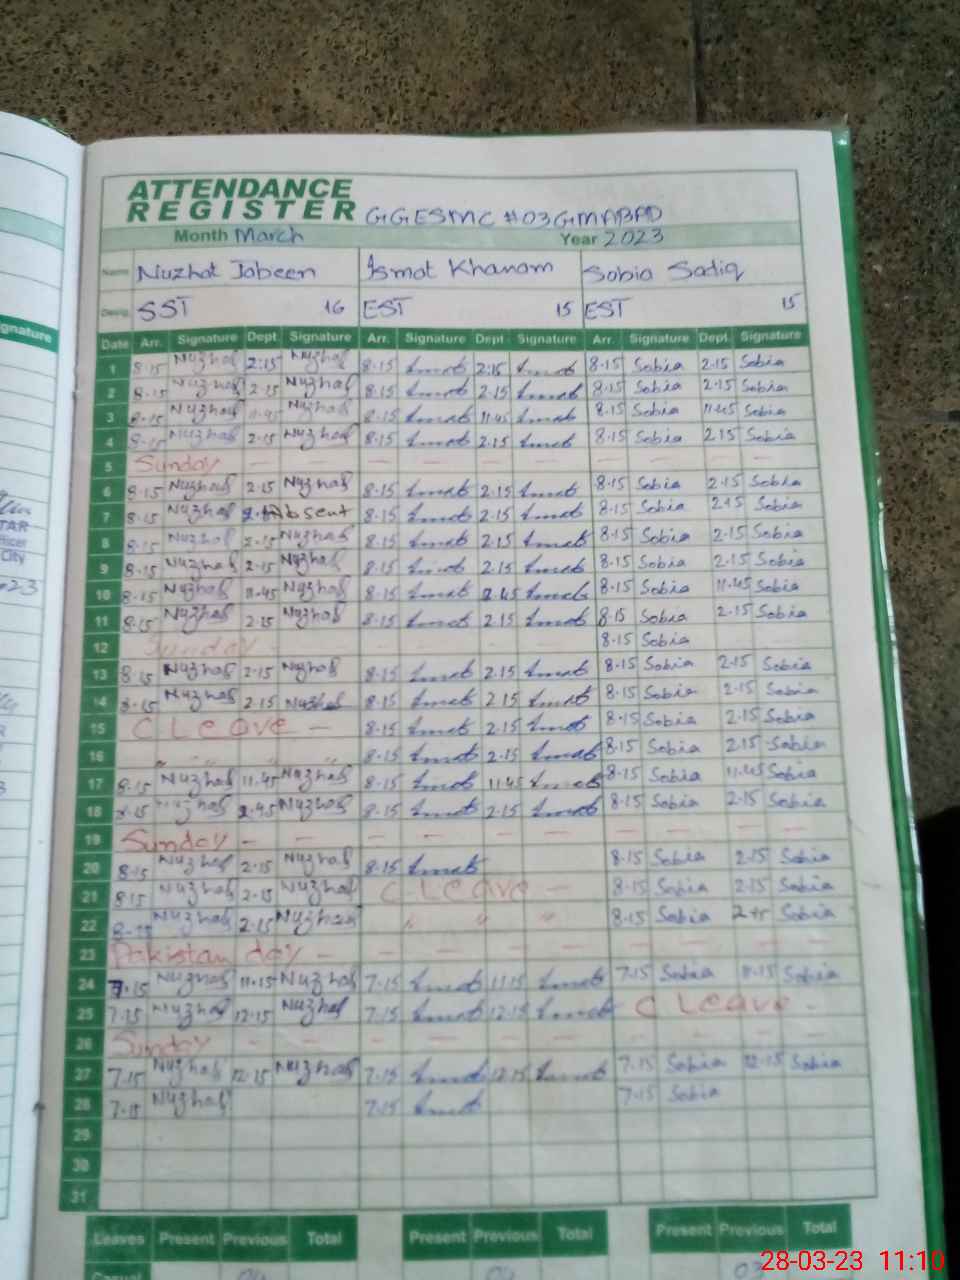 ATTENDANCE
REGISTER GGESMC #03 GMABAD
Month March Year 2023
Name Nuzhat Jabeen Ismat Khanam Sobia Sadiq
Desig. SST 16 EST 15 EST 15
Date Arr. Signature Dept Signature Arr. Signature Dept Signature Arr. Signature Dept. Signature
1 8.15 Nuzhat 2:15 Nuzhat 8.15 Ismat 2:15 Ismat 8.15 Sobia 2.15 Sobia
2 8.15 Nuzhat 2.15 Nuzhat 8.15 Ismat 2.15 Ismat 8.15 Sobia 2.15 Sobia
3 8.15 Nuzhat 11.45 Nuzhat 8.15 Ismat 11.45 Ismat 8.15 Sobia 11.45 Sobia
4 8.15 Nuzhat 2.15 Nuzhat 8.15 Ismat 2.15 Ismat 8.15 Sobia 2.15 Sobia
5 Sunday — — — — — — — — — —
6 8.15 Nuzhat 2.15 Nuzhat 8.15 Ismat 2.15 Ismat 8.15 Sobia 2.15 Sobia
7 8.15 Nuzhat Absent 8.15 Ismat 2.15 Ismat 8.15 Sobia 2.15 Sobia
8 8.15 Nuzhat 2.15 Nuzhat 8.15 Ismat 2.15 Ismat 8.15 Sobia 2.15 Sobia
9 8.15 Nuzhat 2.15 Nuzhat 8.15 Ismat 2.15 Ismat 8.15 Sobia 2.15 Sobia
10 8.15 Nuzhat 11.45 Nuzhat 8.15 Ismat Ismat 8.15 Sobia 11.45 Sobia
11 8.15 Nuzhat 2.15 Nuzhat 8.15 Ismat 2.15 Ismat 8.15 Sobia 2.15 Sobia
12 Sunday — 8.15 Sobia
13 8.15 Nuzhat 2.15 Nuzhat 8.15 Ismat 2.15 Ismat 8.15 Sobia 2.15 Sobia
14 8.15 Nuzhat 2.15 Nuzhat 8.15 Ismat 2.15 Ismat 8.15 Sobia 2.15 Sobia
15 C Leave — 8.15 Ismat 2.15 Ismat 8.15 Sobia 2.15 Sobia
16 " " " 8.15 Ismat 2.15 Ismat 8.15 Sobia 2.15 Sobia
17 8.15 Nuzhat 11.45 Nuzhat 8.15 Ismat 11.45 Ismat 8.15 Sobia 11.45 Sobia
18 8.15 Nuzhat 2.45 Nuzhat 8.15 Ismat 2.15 Ismat 8.15 Sobia 2.15 Sobia
19 Sunday — — — — — — — — — —
20 8.15 Nuzhat 2.15 Nuzhat 8.15 Ismat 8.15 Sobia 2.15 Sobia
21 8.15 Nuzhat 2.15 Nuzhat C Leave — 8.15 Sobia 2.15 Sobia
22 8.15 Nuzhat 2.15 Nuzhat " " " 8.15 Sobia Sobia
23 Pakistan day — — — — — — — — —
24 7.15 Nuzhat 11.15 Nuzhat 7.15 Ismat 11.15 Ismat 7.15 Sobia 11.15 Sobia
25 7.15 Nuzhat 12.15 Nuzhat 7.15 Ismat 12.15 Ismat C Leave -
26 Sunday — — — — — — — — — —
27 7.15 Nuzhat 12.15 Nuzhat 7.15 Ismat 12.15 Ismat 7.15 Sobia 12.15 Sobia
28 7.15 Nuzhat 7.15 Ismat 7.15 Sobia
29
30
31
Leaves Present Previous Total Present Previous Total Present Previous Total
Casual
gnature
TAR
ficer
CITY
28-03-23 11:10